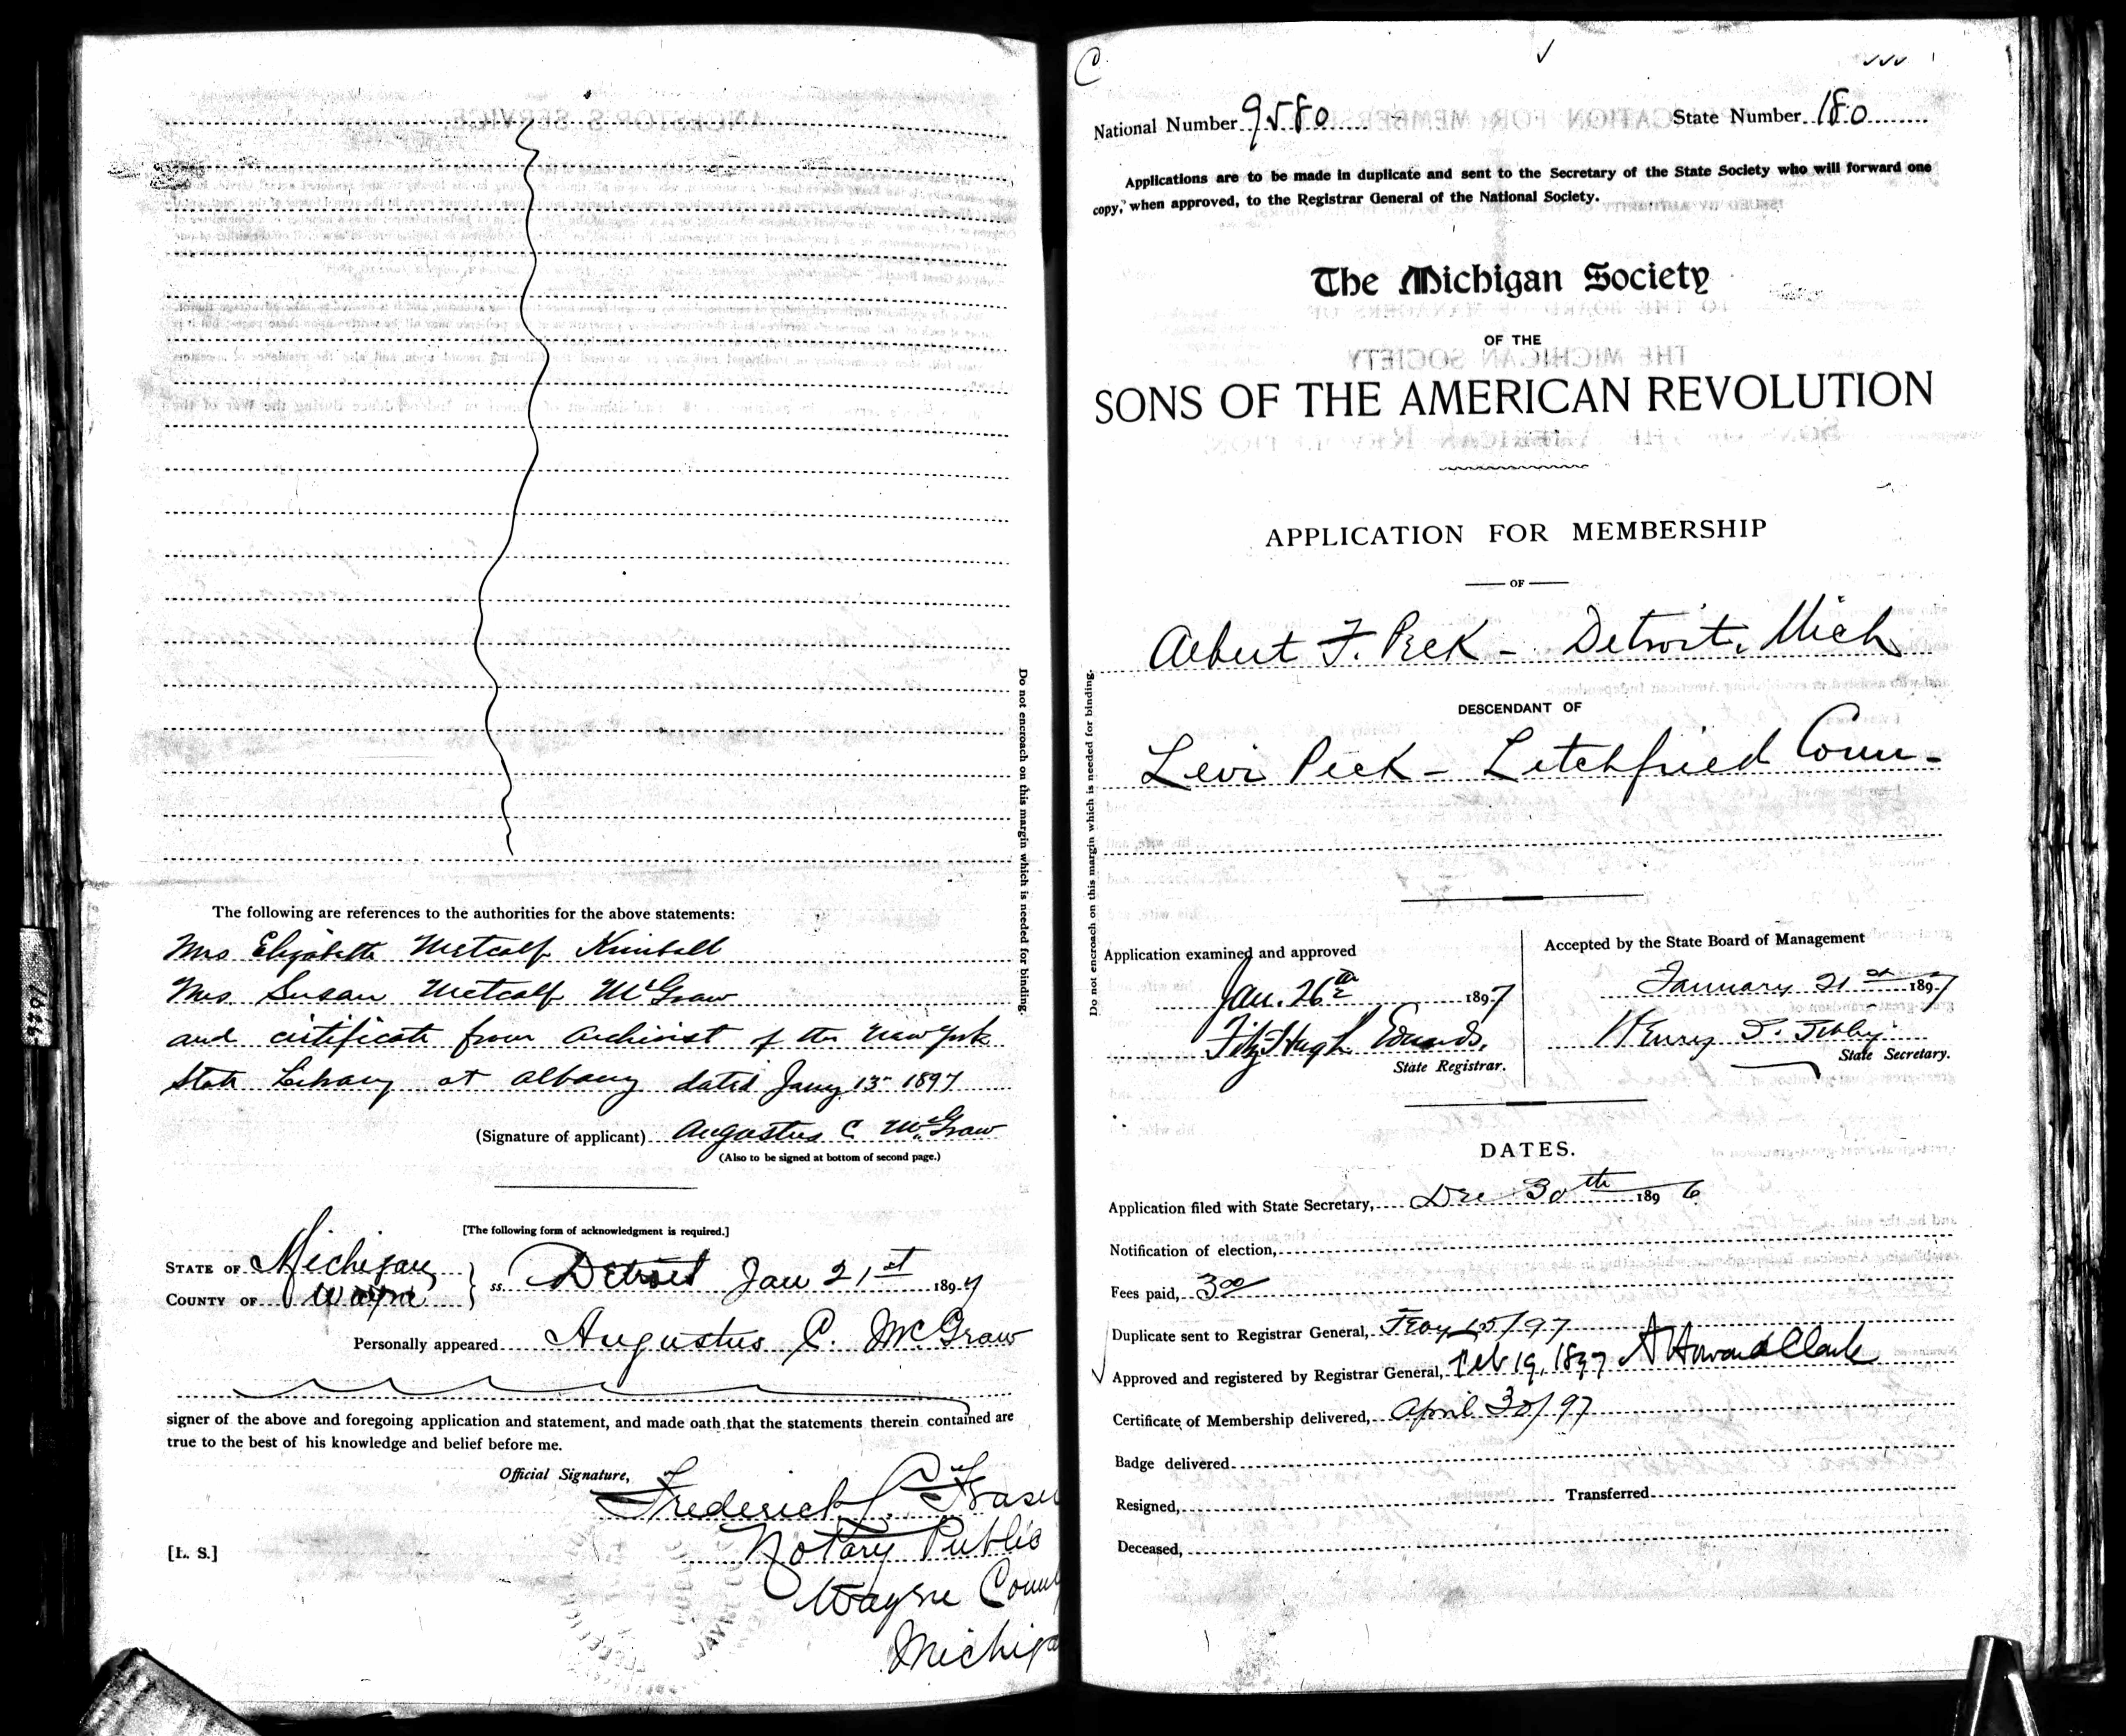 The following are references to the authorities for the above statements:
Mrs Elizabeth Metcalf Kimball
Mrs Susan Metcalf McGraw
and certificate from Archivist of the New York
State Library at Albany dated Jany 13" 1897
(Signature of applicant) Augustus C McGraw
(Also to be signed at bottom of second page.)
[The following form of acknowledgment is required.]
STATE OF Michigan
COUNTY OF Wayne
ss. Detroit Jan 21st 1897
Personally appeared Augustus C. McGraw
signer of the above and foregoing application and statement, and made oath that the statements therein contained are
true to the best of his knowledge and belief before me.
Official Signature,
Frederick C. Fraser
[L. S.]
Notary Public
Wayne County
Michiga
Do not encroach on this margin which is needed for binding.
National Number 9580 State Number 180
Applications are to be made in duplicate and sent to the Secretary of the State Society who will forward one
copy, when approved, to the Registrar General of the National Society.
The Michigan Society
OF THE
SONS OF THE AMERICAN REVOLUTION
APPLICATION FOR MEMBERSHIP
OF
Albert F. Peck - Detroit, Mich
DESCENDANT OF
Levi Peck - Litchfield Conn -
Do not encroach on this margin which is needed for binding.
Application examined and approved
Jan. 26th 1897
FitzHugh Edwards,
State Registrar.
Accepted by the State Board of Management
January 21st 1897
Henry
State Secretary.
DATES.
Application filed with State Secretary, Dec 30th 1896
Notification of election,
Fees paid, 3.00
Duplicate sent to Registrar General, 15/97
Approved and registered by Registrar General, Feb 19, 1897 A Howard Clark
Certificate of Membership delivered, April 30/97
Badge delivered
Resigned, Transferred
Deceased,